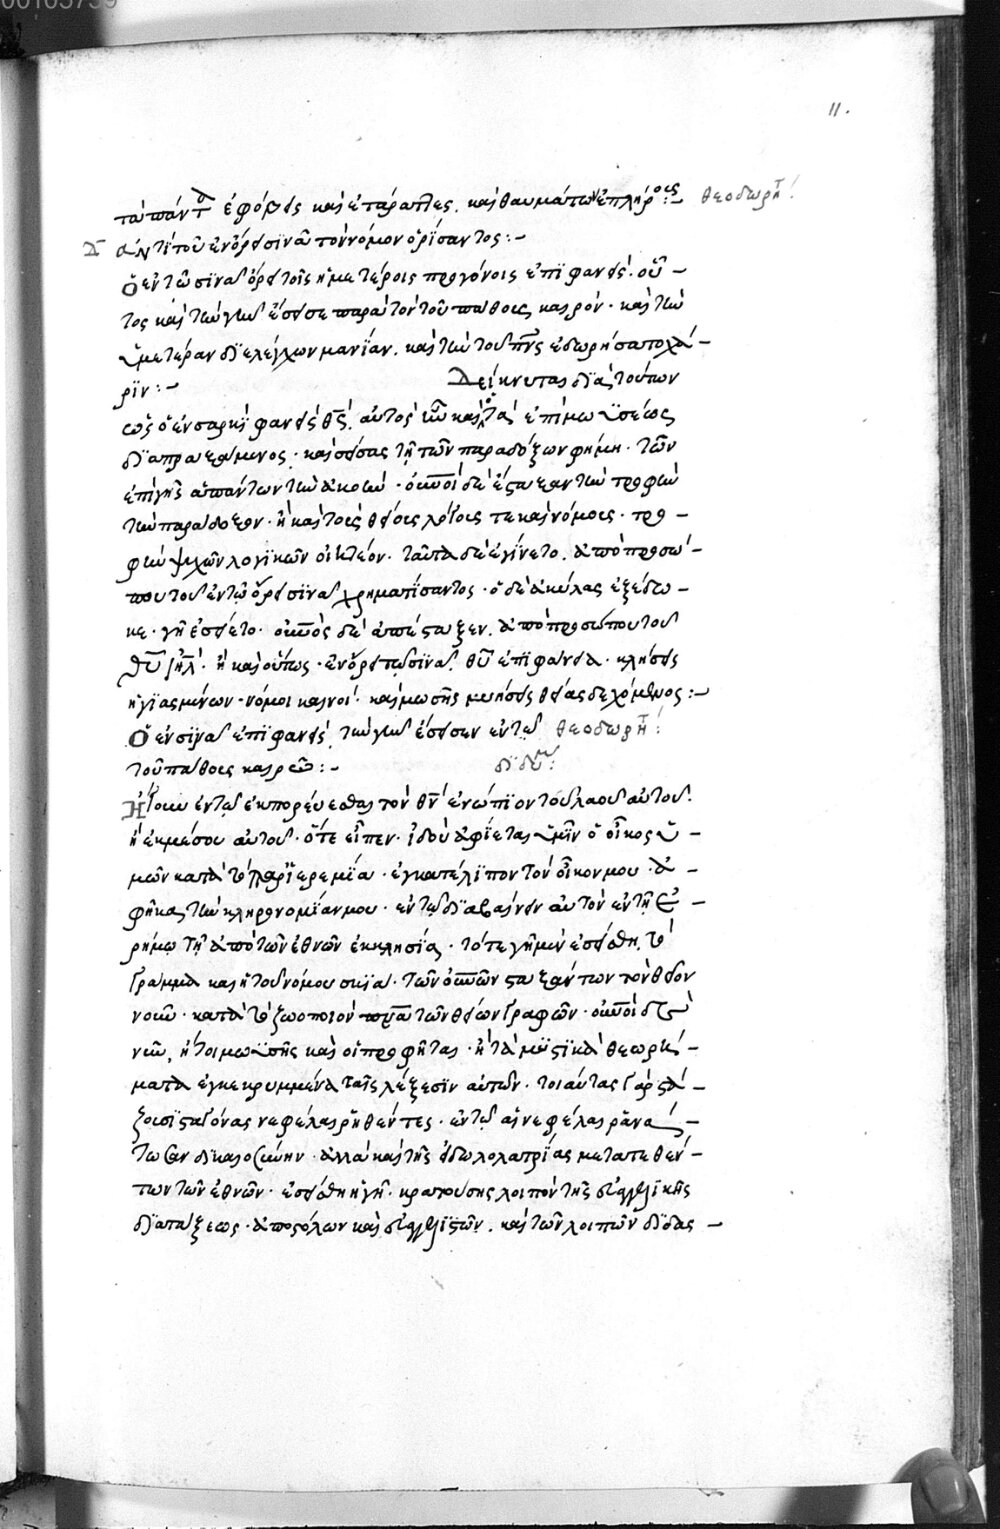 11.
τὰ πάντα ἐφόβεις καὶ ἐτάραττες. καὶ θαυμάτων ἐπλήροις :- θεοδωρήτ
ἀντὶ τοῦ ἐν ὄρει σινᾶ τὸν νόμον ὁρίσαντος :-
Ὁ ἐν τῶ σϊνᾶ ὄρει τοῖς ἡμετέροις προγόνοις ἐπιφανείς. οὗ -
τος καὶ τὴν γῆν ἔσεισε παρὰ τὸν τοῦ πάθους καιρόν· καὶ τὴν
ὑμετέραν διελέγχων μανΐαν. καὶ τὴν τοῦ πνς ἐδωρήσατο χά -
ριν :- Δείκνυται διὰ τούτων
ὡς ὁ ἐν σαρκὶ φανεὶς θς, αὐτὸς ἦν καὶ τὰ ἐπὶ μωϋσέως
διαπραξάμενος· καὶ σείσας τῆ τῶν παραδόξων φήμη· τῶν
ἐπὶ γῆς ἁπάντων τὴν ἀκοὴν· οὐνοὶ δὲ ἔσταξαν τὴν τροφὴν
τὴν παράδοξον· ἢ καὶ τοῖς θείοις λόγοις τε καὶ νόμοις· τρο -
φὴν ψυχῶν λογικῶν οἰητέον· ταῦτα δὲ ἐγίνετο. ἀπὸ προσώ -
που τοῦ ἐν τῶ ὄρει σϊνᾶ χρηματίσαντος· ὁ δὲ ἀκύλας ἐξέδω -
κε· γῆ ἐσείετο· οὐνὸς δὲ ἀπέσταξεν. ἀπὸ προσώπου τοῦ
θυ ἰηλ· ἢ καὶ οὕτως· ἐν ὄρει τῶ σϊνᾶ, θυ ἐπιφάνεια· κλήσεις
ἡγιασμένων· νόμοι καινοί· καὶ μωσῆς μυήσεις θείας δεχόμενος :-
Ὁ ἐν σϊνᾶ ἐπιφανείς, τὴν γῆν ἔσεισεν ἐν τῶ θεοδωρήτ
τοῦ πάθους καιρῶ :- διδύμ
Ἤγουν ἐν τῶ ἐκπορεύεσθαι τὸν θν ἐνώπιον τοῦ λαοῦ αὐτοῦ.
ἢ ἐκ μέσου αὐτοῦ· ὅτε εἶπεν· ἰδοὺ ἀφίεται ὑμῖν ὁ οἶκος ὑ -
μῶν κατὰ τὸ παρ' ἱερεμΐα· ἐγκατέλιπον τὸν οἶκον μου· ἀ -
φῆκα τὴν κληρονομΐαν μου· ἐν τῶ διαβαίνειν αὐτὸν ἐν τῆ ἐ -
ρήμω τῆ ἀπὸ τῶν ἐθνῶν ἐκκλησία· τότε γῆ μὲν ἐσείσθη, τὸ
γράμμα καὶ ἡ τοῦ νόμου σκιὰ· τῶν οὐνῶν σταξάντων τὸν θεῖον
νοῦν· κατὰ τὸ ζωοποιὸν πνα τῶν θείων γραφῶν· οὐνοὶ δ
νῦν, ἤτοι μωϋσῆς καὶ οἱ προφῆται· ἢ τὰ μυστικὰ θεωρή -
ματα ἐγκεκρυμμένα ταῖς λέξεσιν αὐτῶν· τοιαύτας γὰρ στά -
ζουσι σταγόνας νεφέλαι ῥηθέντες· ἐν τῶ αἱ νεφέλαι ῥανά -
τωσαν δικαιοσύνην· ἀλλὰ καὶ τῆς εἰδωλολατρίας μετατεθέν -
των τῶν ἐθνῶν· ἐσείσθη ἡ γῆ· κρατούσης λοιπὸν τῆς εὐαγγελικῆς
διατάξεως· ἀποστόλων καὶ εὐαγγελιστῶν. καὶ τῶν λοιπῶν διδας -